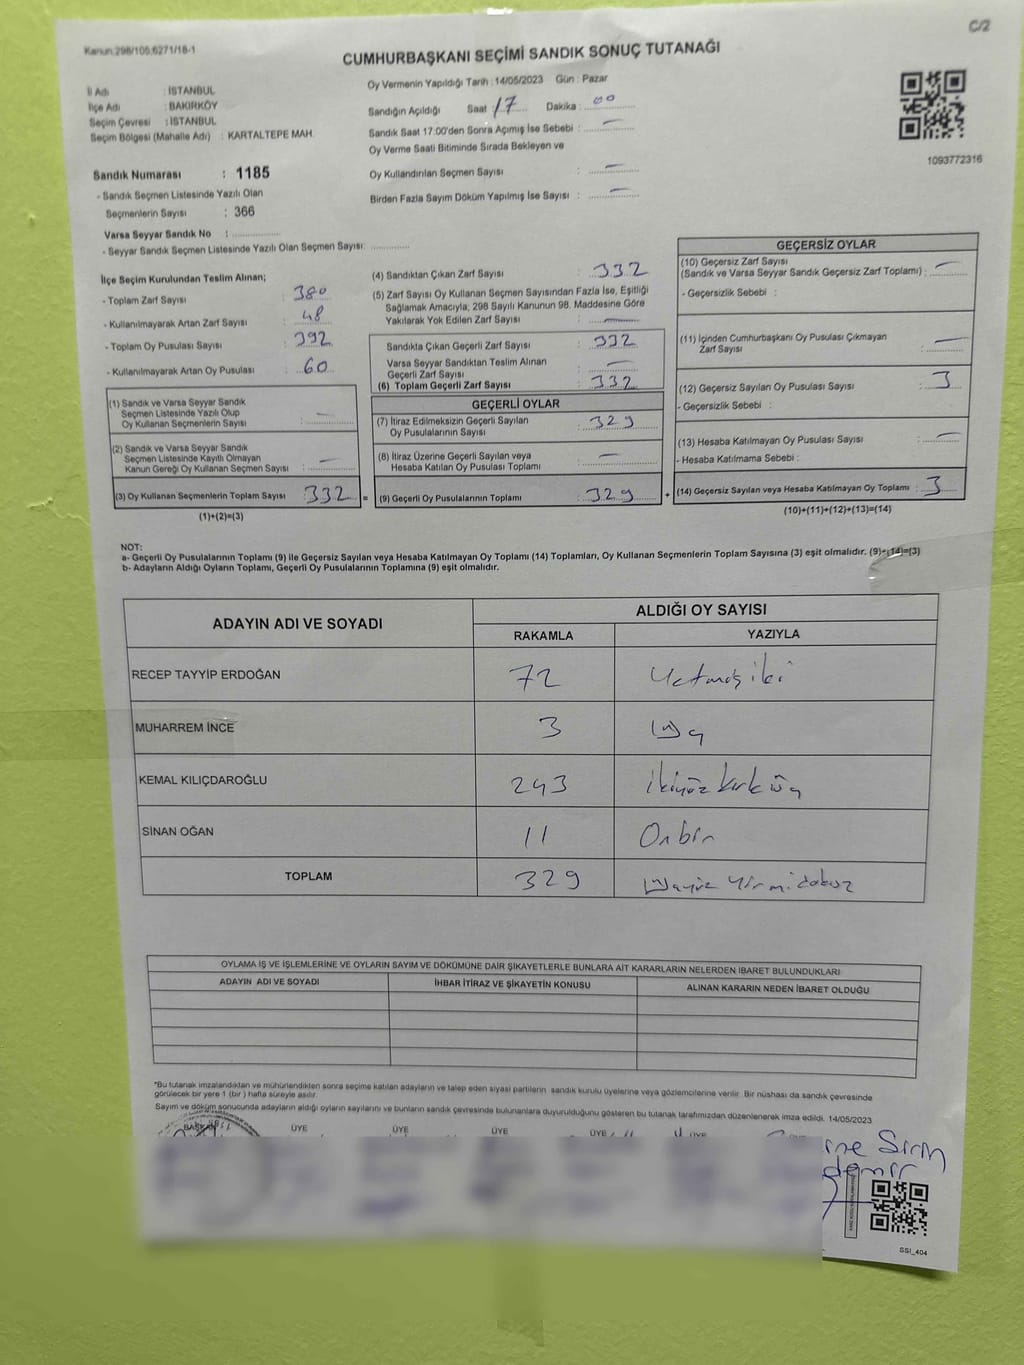 C/2
Kanun:298/105,6271/18-1
CUMHURBAŞKANI SEÇİMİ SANDIK SONUÇ TUTANAĞI
İl Adı : İSTANBUL
İlçe Adı : BAKIRKÖY
Seçim Çevresi : İSTANBUL
Seçim Bölgesi (Mahalle Adı) : KARTALTEPE MAH.
Oy Vermenin Yapıldığı Tarih : 14/05/2023 Gün : Pazar
Sandığın Açıldığı Saat 17 Dakika : 00
Sandık Saat 17:00'den Sonra Açımış İse Sebebi : —
Oy Verme Saati Bitiminde Sırada Bekleyen ve
Oy Kullandırılan Seçmen Sayısı : —
Birden Fazla Sayım Döküm Yapılmış İse Sayısı : —
1093772316
Sandık Numarası : 1185
- Sandık Seçmen Listesinde Yazılı Olan
Seçmenlerin Sayısı : 366
Varsa Seyyar Sandık No :
- Seyyar Sandık Seçmen Listesinde Yazılı Olan Seçmen Sayısı:
İlçe Seçim Kurulundan Teslim Alınan;
- Toplam Zarf Sayısı : 380
- Kullanılmayarak Artan Zarf Sayısı : 48
- Toplam Oy Pusulası Sayısı : 392
- Kullanılmayarak Artan Oy Pusulası : 60
(1) Sandık ve Varsa Seyyar Sandık
Seçmen Listesinde Yazılı Olup
Oy Kullanan Seçmenlerin Sayısı : —
(2) Sandık ve Varsa Seyyar Sandık
Seçmen Listesinde Kayıtlı Olmayan
Kanun Gereği Oy Kullanan Seçmen Sayısı : —
(3) Oy Kullanan Seçmenlerin Toplam Sayısı : 332 =
(1)+(2)=(3)
(4) Sandıktan Çıkan Zarf Sayısı : 332
(5) Zarf Sayısı Oy Kullanan Seçmen Sayısından Fazla İse, Eşitliği
Sağlamak Amacıyla; 298 Sayılı Kanunun 98. Maddesine Göre
Yakılarak Yok Edilen Zarf Sayısı : —
Sandıkta Çıkan Geçerli Zarf Sayısı : 332
Varsa Seyyar Sandıktan Teslim Alınan
Geçerli Zarf Sayısı : —
(6) Toplam Geçerli Zarf Sayısı : 332
GEÇERLİ OYLAR
(7) İtiraz Edilmeksizin Geçerli Sayılan
Oy Pusulalarının Sayısı : 329
(8) İtiraz Üzerine Geçerli Sayılan veya
Hesaba Katılan Oy Pusulası Toplamı : —
(9) Geçerli Oy Pusulalarının Toplamı : 329 +
GEÇERSİZ OYLAR
(10) Geçersiz Zarf Sayısı
(Sandık ve Varsa Seyyar Sandık Geçersiz Zarf Toplamı) : —
- Geçersizlik Sebebi :
(11) İçinden Cumhurbaşkanı Oy Pusulası Çıkmayan
Zarf Sayısı : —
(12) Geçersiz Sayılan Oy Pusulası Sayısı : 3
- Geçersizlik Sebebi :
(13) Hesaba Katılmayan Oy Pusulası Sayısı : —
- Hesaba Katılmama Sebebi :
(14) Geçersiz Sayılan veya Hesaba Katılmayan Oy Toplamı : 3
(10)+(11)+(12)+(13)=(14)
NOT:
a- Geçerli Oy Pusulalarının Toplamı (9) ile Geçersiz Sayılan veya Hesaba Katılmayan Oy Toplamı (14) Toplamları, Oy Kullanan Seçmenlerin Toplam Sayısına (3) eşit olmalıdır. (9)+(14)=(3)
b- Adayların Aldığı Oyların Toplamı, Geçerli Oy Pusulalarının Toplamına (9) eşit olmalıdır.
ADAYIN ADI VE SOYADI
ALDIĞI OY SAYISI
RAKAMLA YAZIYLA
RECEP TAYYİP ERDOĞAN 72 Yetmiş iki
MUHARREM İNCE 3 Üç
KEMAL KILIÇDAROĞLU 243 İkiyüz kırk üç
SİNAN OĞAN 11 Onbir
TOPLAM 329 Üçyüz Yirmi dokuz
OYLAMA İŞ VE İŞLEMLERİNE VE OYLARIN SAYIM VE DÖKÜMÜNE DAİR ŞİKAYETLERLE BUNLARA AİT KARARLARIN NELERDEN İBARET BULUNDUKLARI
ADAYIN ADI VE SOYADI İHBAR İTİRAZ VE ŞİKAYETİN KONUSU ALINAN KARARIN NEDEN İBARET OLDUĞU
*Bu tutanak imzalandıktan ve mühürlendikten sonra seçime katılan adayların ve talep eden siyasi partilerin sandık kurulu üyelerine veya gözlemcilerine verilir. Bir nüshası da sandık çevresinde
görülecek bir yere 1 (bir ) hafta süreyle asılır.
Sayım ve döküm sonucunda adayların aldığı oyların sayılarını ve bunların sandık çevresinde bulunanlara duyurulduğunu gösteren bu tutanak tarafımızdan düzenlenerek imza edildi. 14/05/2023
BAŞKAN ÜYE ÜYE ÜYE ÜYE ÜYE
SSI_404